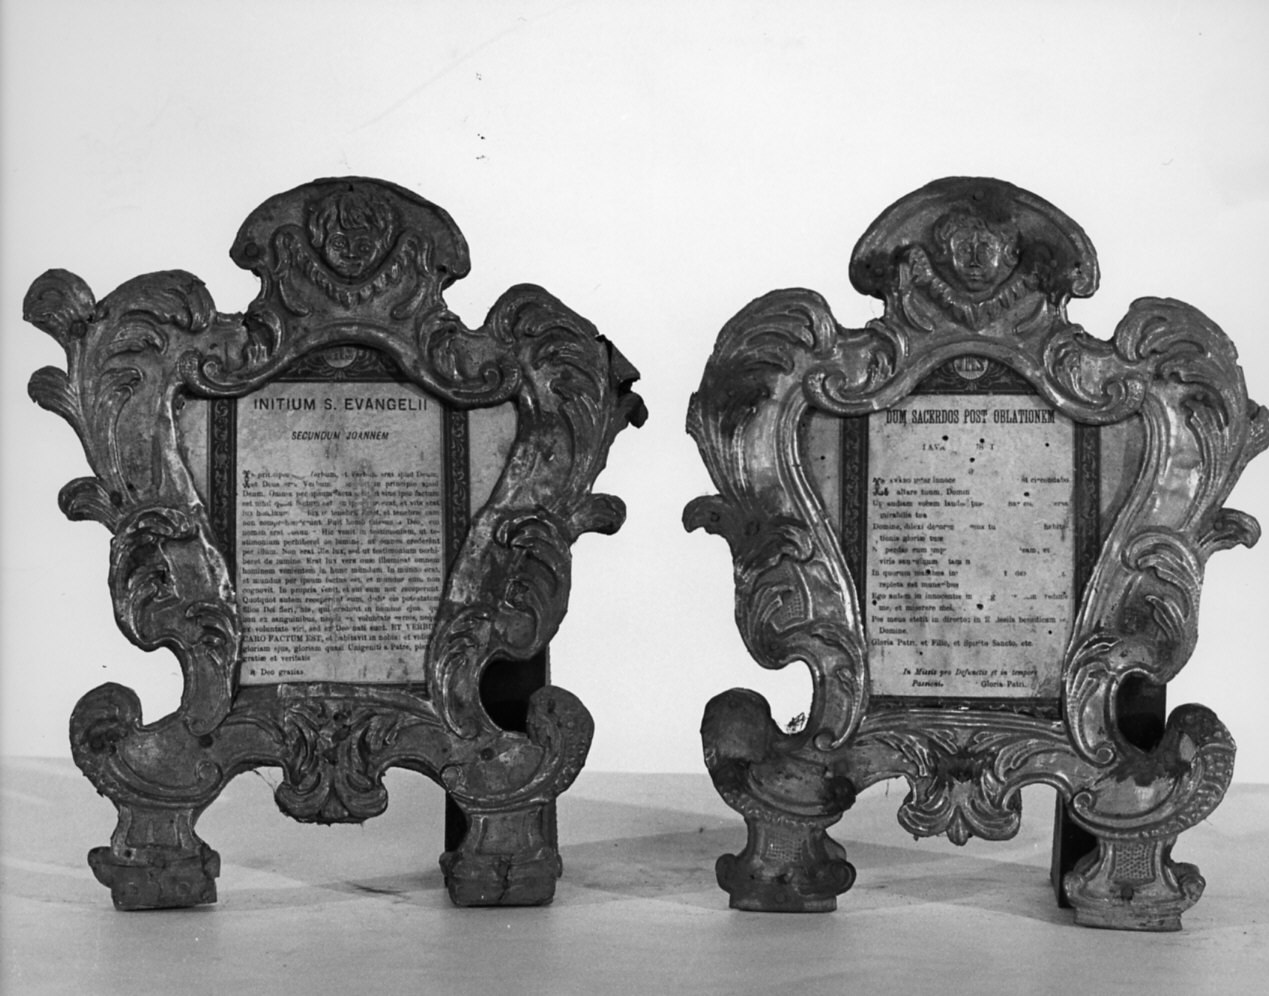 IHS
INITIUM S. EVANGELII
SECUNDUM JOANNEM
In principio Verbum, et Verbum erat apud Deum,
et Deus erat Verbum in principio apud
Deum. Omnia per ipsum facta sine ipso factum
est nihil quod factum est in ipso vita erat, et vita erat
lux hominum lux in tenebris lucet, et tenebræ eam
non comprehenderunt. Fuit homo missus a Deo, cui
nomen erat Joannes Hic venit in testimonium, ut te-
stimonium perhiberet de lumine, ut omnes crederent
per illum. Non erat ille lux, sed ut testimonium perhi-
beret de lumine. Erat lux vera quæ illuminat omnem
hominem venientem in hunc mundum. In mundo erat,
et mundus per ipsum factus est, et mundus eum non
cognovit. In propria venit, et sui eum non receperunt.
Quotquot autem receperunt eum, dedit eis potestatem
filios Dei fieri, his, qui credunt in nomine ejus, qui
non ex sanguinibus, neque ex voluntate carnis, neque
ex voluntate viri, sed ex Deo nati sunt. ET VERBUM
CARO FACTUM EST, et habitavit in nobis: et vidimus
gloriam ejus, gloriam quasi Unigeniti a Patre, plenum
gratiæ et veritatis
℟ Deo gratias.
IHS
DUM SACERDOS POST OBLATIONEM
LAVAT
Lavabo inter innoce et circumdabo
altare tuum, Domine
Ut audiam vocem laudis
mirabilia tua
Domine, dilexi decorem tu habita-
tionis gloriæ tuæ
perdas cum imp eam, et
viris sanguinum
In quorum manibus in dex
repleta est muneribus
Ego autem in innocentia redime
me, et miserere mei.
Pes meus stetit in directo; in Ecclesiis benedicam
Domine.
Gloria Patri, et Filio, et Spiritui Sancto, etc.
In Missis pro Defunctis et in tempore
Passionis. Gloria Patri.